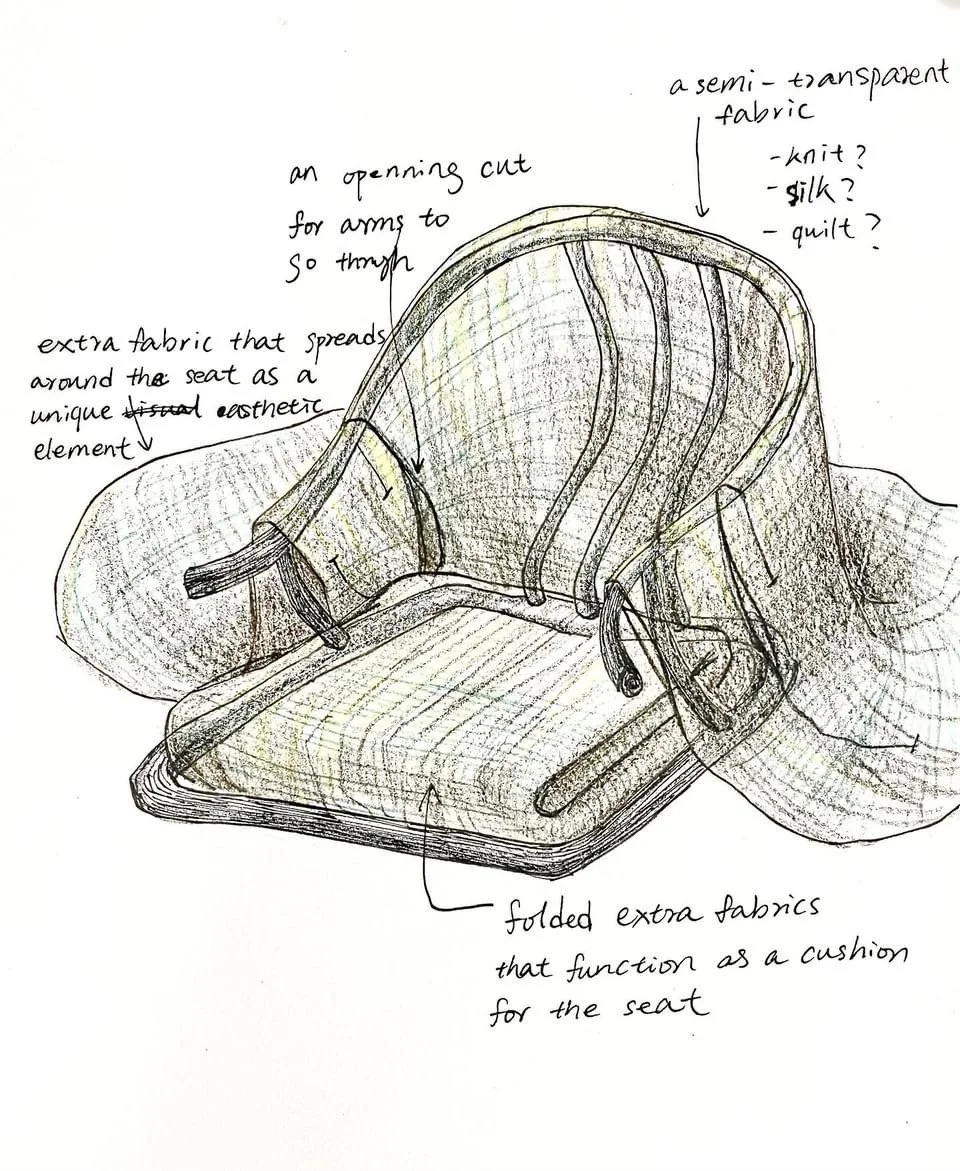 a semi-transparent
fabric
-knit?
-silk?
- quilt?
an openning cut
for arms to
go though
extra fabric that spreads
around the seat as a
unique visual easthetic
element
folded extra fabrics
that function as a cushion
for the seat